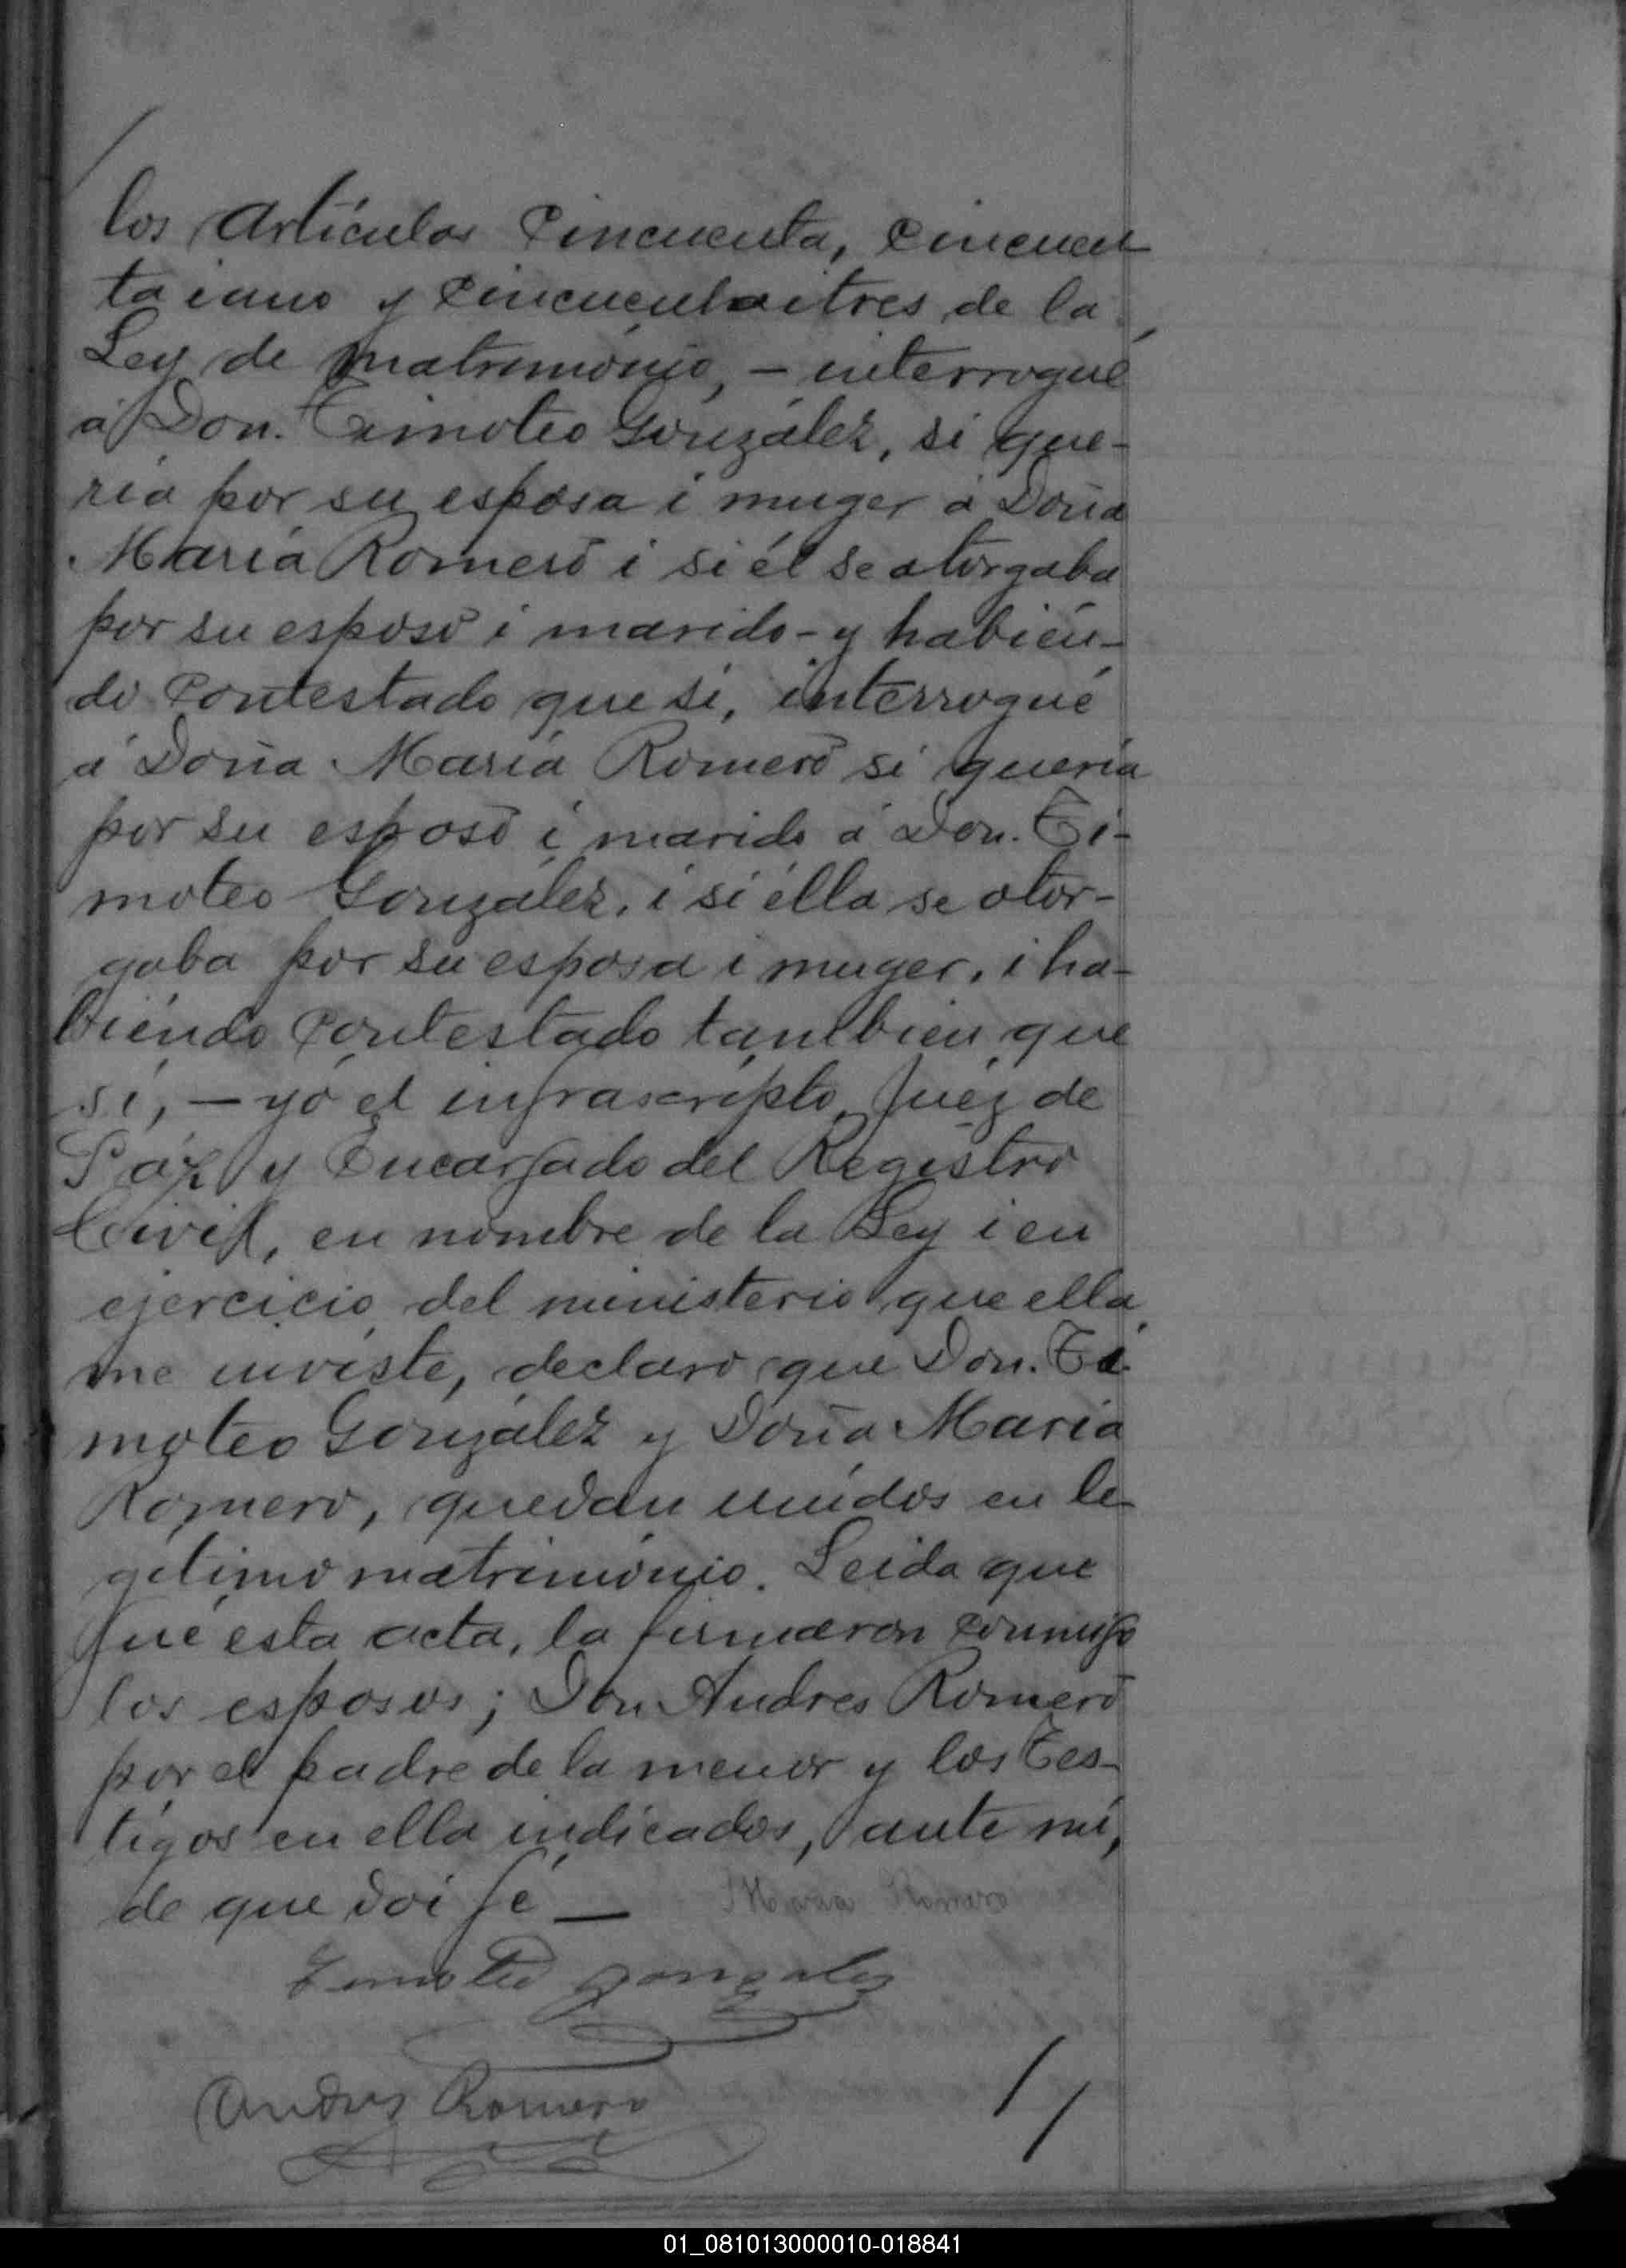 los Artículos Cincuenta, cincuen
taiuno y cincuentaitres de la
Ley de matrimónio, – interrogué
á Don. Timoteo González, si que-
ría por su esposa i muger á Doña
María Romero i si él se otorgaba
por su esposo i marido - y habién-
do contestado que si, interrogué
á Doña María Romero si quería
por su esposo i marido á Don. Ti-
moteo González, i si élla se otor-
gaba por su esposa i muger, i ha-
biéndo contestado tambien que
sí, – yó el infrascripto Juéz de
Páz y Encargado del Registro
Civil, en nombre de la Ley i en
ejercicio del ministerio que ella
me inviste, declaro que Don. Ti-
moteo González y Doña María
Romero, quedan unidos en le
gitimo matrimónio. Leida que
fué esta acta, la firmaron conmigo
los esposos; Don Andres Romero
por el padre de la menor y los Tes-
tigos en ella indicados, ante mí,
de que doi fé —
Maria Romero
Timoteo gonzalez
Andres Romero
01_081013000010-018841